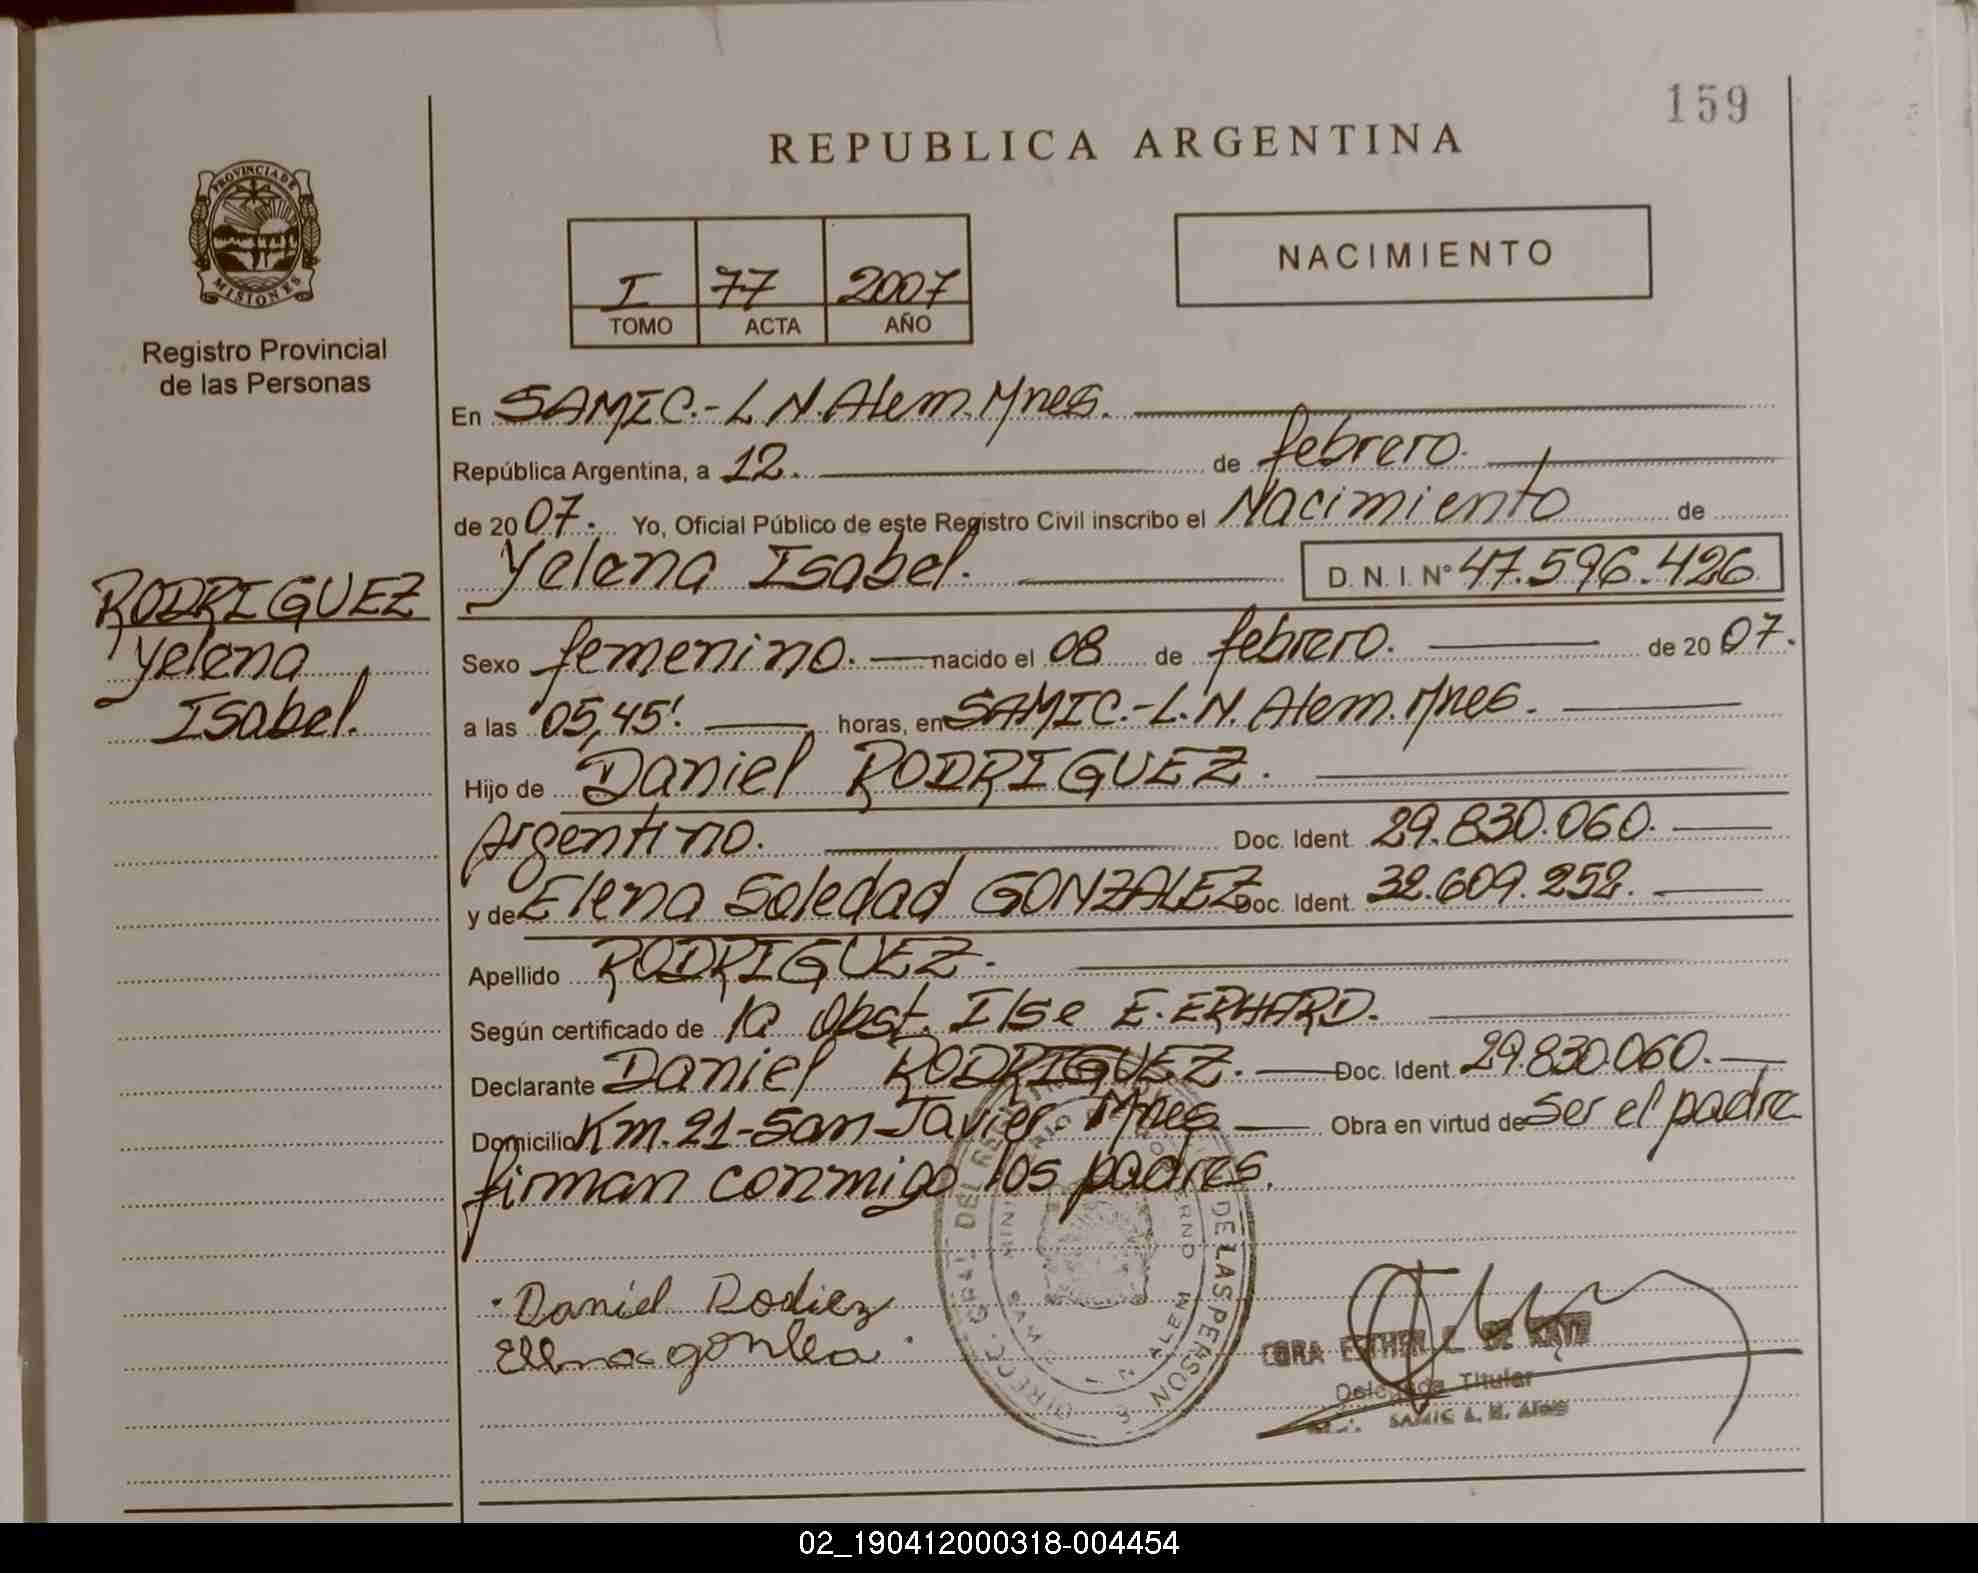 159
REPUBLICA ARGENTINA
PROVINCIA DE
MISIONES
Registro Provincial
de las Personas
NACIMIENTO
I 77 2007
TOMO ACTA AÑO
En SAMIC.-L N. Alem. Mnes.
República Argentina, a 12. de febrero.
de 2007. Yo, Oficial Público de este Registro Civil inscribo el Nacimiento de
Yelena Isabel. D. N. I. Nº 47.596.426
RODRIGUEZ
Yelena
Isabel.
Sexo femenino. nacido el 08 de febrero. de 2007.
a las 05,45'. horas, en SAMIC.-L.N. Alem. Mnes.
Hijo de Daniel RODRIGUEZ.
Argentino. Doc. Ident. 29.830.060.
y de Elena Soledad GONZALEZ Doc. Ident. 32.609.252.
Apellido RODRIGUEZ.
Según certificado de la Obst. Ilse E. ERHARD.
Declarante Daniel RODRIGUEZ. Doc. Ident. 29.830.060.
Domicilio Km. 21-San Javier. Mnes Obra en virtud de Ser el padre
firman conmigo los padres.
Daniel Rodiez
DE LAS PERSON S
ALEM
ESTHER
Delegada Titular
SAMIC L. N.
02_190412000318-004454